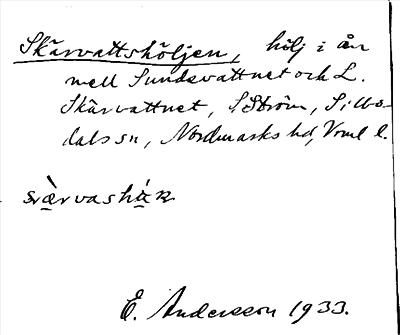 Skärvattshöljen, hölj i ån
mell Sundsvattnet och L.
Skärvattnet, S Ström, Sillbo-
dals sn, Nordmarks hd, Vrml l.
E. Andersson 1933.